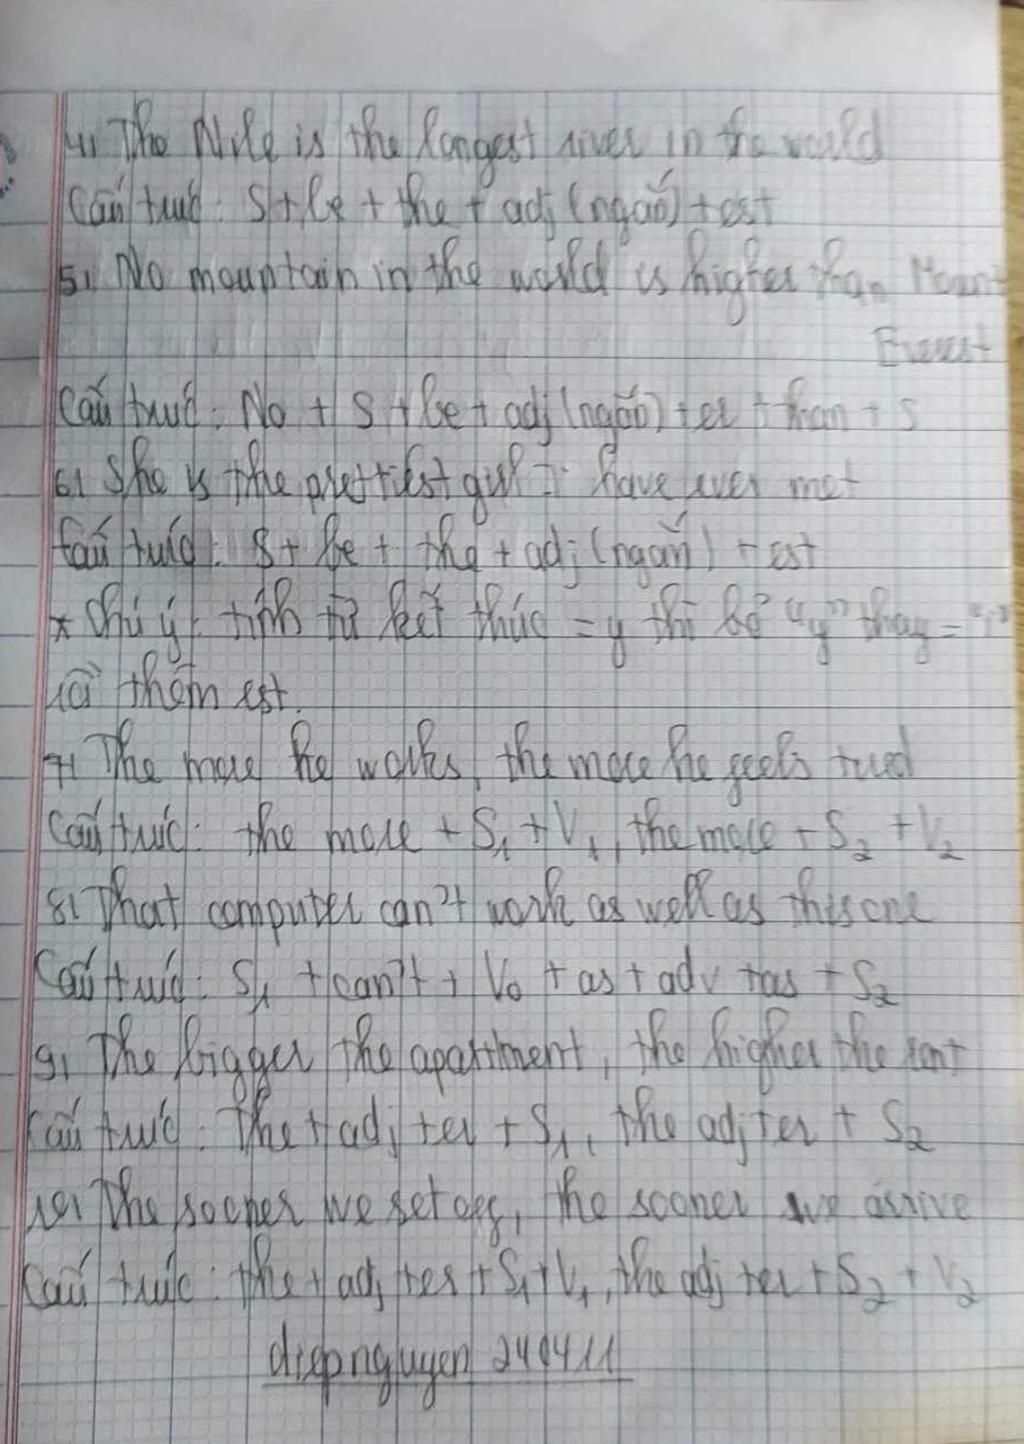 4, The Nile is the longest river in the world
Cấu trúc: S + be + the + adj (ngắn) + est
5, No mountain in the world is higher than Mount
Everest
Cấu trúc: No + S + be + adj (ngắn) + er + than + S
6, She is the prettiest girl I have ever met
Cấu trúc: S + be + the + adj (ngắn) + est
* Chú ý: tính từ kết thúc = y thì bỏ "y" thay = "i"
rồi thêm est.
7, The more he works, the more he feels tired
Cấu trúc: the more + S1 + V1, the more + S2 + V2
8, That computer can't work as well as this one
Cấu trúc: S1 + can't + V0 + as + adv + as + S2
9, The bigger the apartment, the higher the rent
Cấu trúc: The + adj + er + S1, the adj + er + S2
10, The sooner we set off, the sooner we arrive
Cấu trúc: the + adj + er + S1 + V1, the adj + er + S2 + V2
diepnguyen 240411